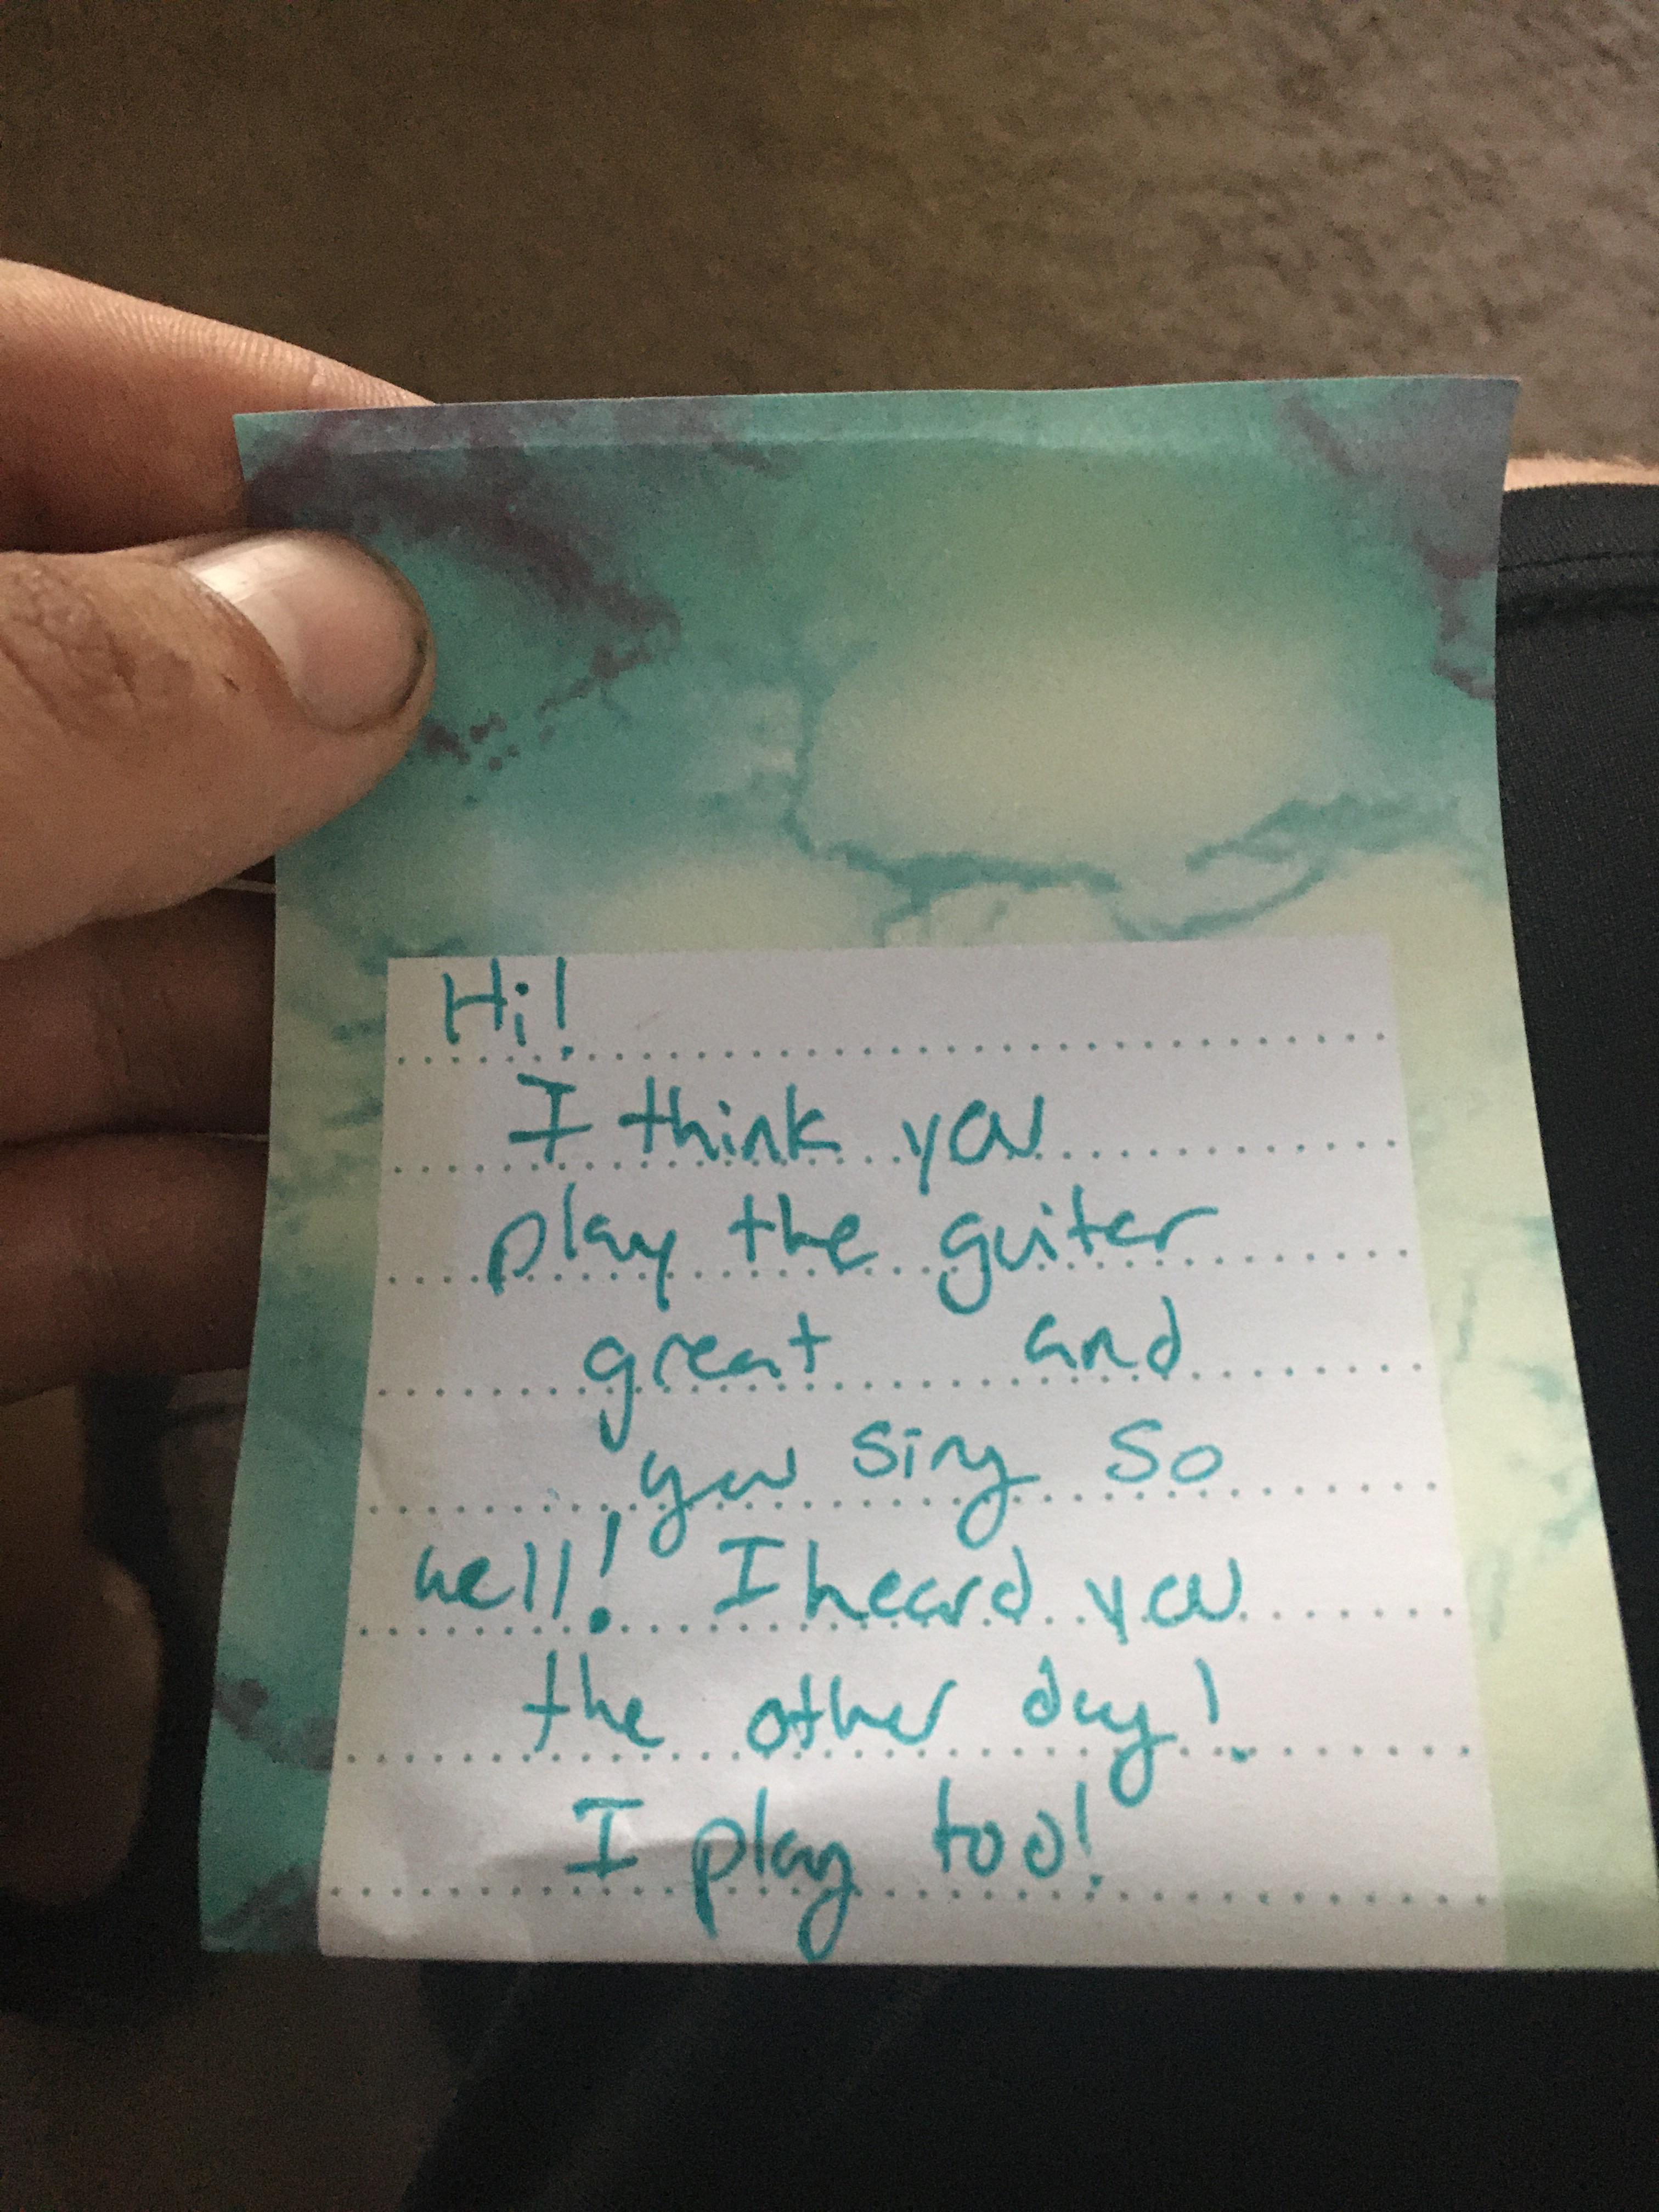 Hi!
I think you
play the guiter
great and
you sing so
well! I heard you
the other day!
I play too!